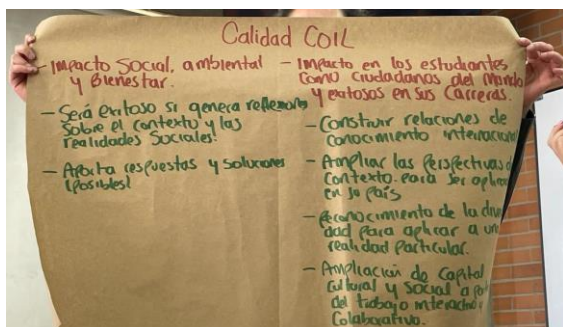 Calidad COIL
- Impacto Social, ambiental
y Bienestar.
- Será exitoso si genera reflexion
sobre el contexto y las
realidades Sociales.
- Aporta respuestas y soluciones
(posibles)
- Impacto en los estudiantes
como ciudadanos del mundo
y exitosos en sus Carreras.
- Construir relaciones de
conocimiento internacional
- Ampliar las Perspectivas
Contexto para ser
en su país
- Reconocimiento de la dive
dad para aplicar a un
realidad particular.
- Ampliación de Capital
Cultural y Social a
del trabajo interactivo
Colaborativo.